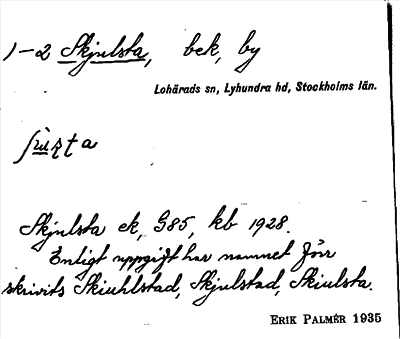 1-2 Skjulsta, bek, by
Lohärads sn, Lyhundra hd, Stockholms län.
Skjulsta ek, G85, kb 1928.
Enligt uppgift har namnet förr
skrivits Skiuhlstad, Skjulstad, Skiulsta.
ERIK PALMÉR 1935